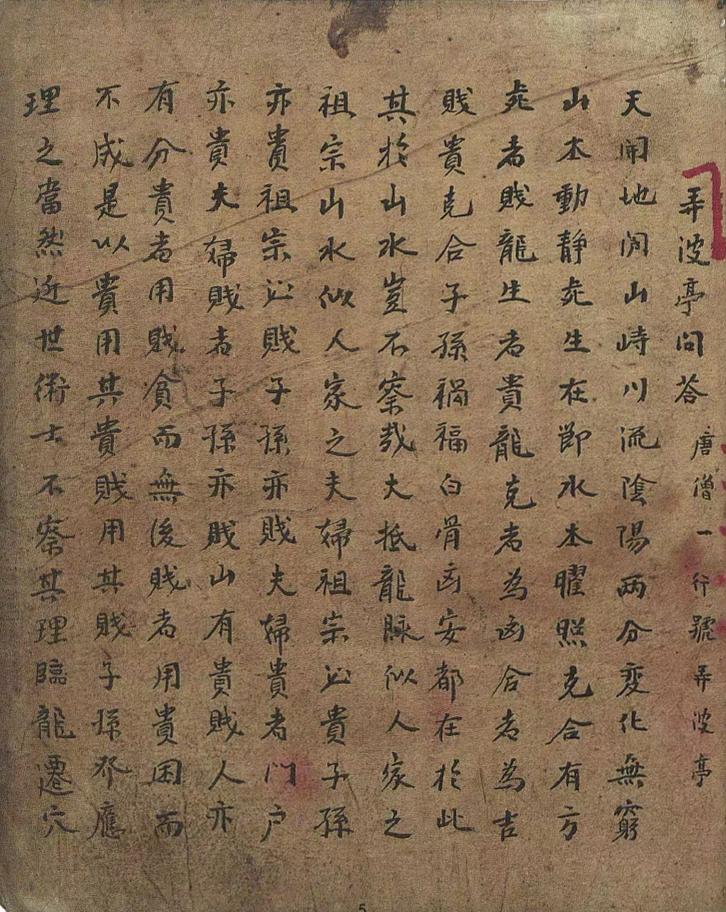 弄波亭問答 唐僧一行號弄波亭
天開地闢山峙川流陰陽兩分变化無窮
山本動靜死生在節水本曜照克合有方
死者賎龍生者貴龍克者為凶合者為吉
賎貴克合子孫禍福白骨凶安都在於此
其於山水豈不察哉大抵龍脉似人家之
祖宗山水似人家之夫婦祖宗山貴子孫
亦貴祖宗山賎子孫亦賎夫婦貴者門户
亦貴夫婦賎者子孫亦賎山有貴賎人亦
有分貴者用賎貧而無後賎者用貴困而
不成是以貴用其貴賎用其賎子孫不應
理之當然近世術士不察其理臨龍遷穴
5